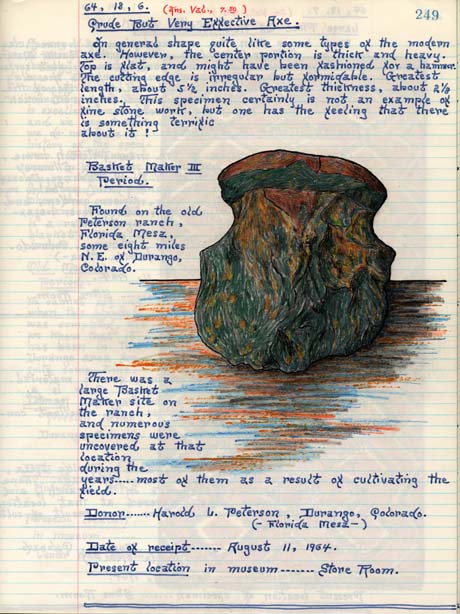 64, 18, 6. (Ins. Val., 7.50)
249
Crude But Very Effective Axe.
In general shape quite like some types of the modern
axe. However, the center portion is thick and heavy.
Top is flat, and might have been fashioned for a hammer.
The cutting edge is irregular but formidable. Greatest
length, about 5½ inches. Greatest thickness, about
inches. This specimen certainly is not an example of
fine stone work, but one has the feeling that there
is something terrific
about it!
Basket Maker III
Period.
Found on the old
Peterson ranch,
Florida Mesa,
some eight miles
N.E. of Durango,
Colorado.
There was a
large Basket
Maker site on
the ranch,
and numerous
specimens were
uncovered at that
location
during the
years.....most of them as a result of cultivating the
field.
Donor...... Harold L. Peterson, Durango, Colorado.
(-Florida Mesa-)
Date of receipt------- August 11, 1964.
Present location in museum------- Store Room.